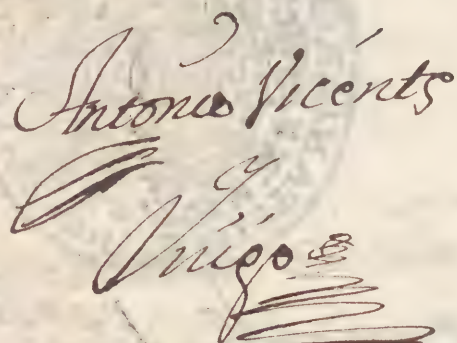 Antonio Vicente
Yñigo